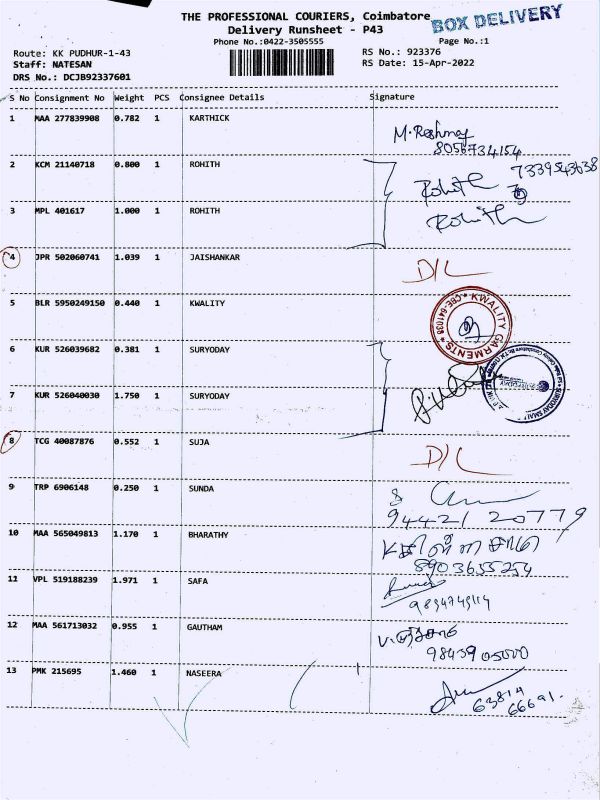 THE PROFESSIONAL COURIERS, Coimbatore
BOX DELIVERY
Delivery Runsheet - P43
Phone No.:0422-3505555
Page No.:1
Route: KK PUDHUR-1-43
RS No.: 923376
Staff: NATESAN
RS Date: 15-Apr-2022
DRS No.: DCJB92337601
S No Consignment No Weight PCS Consignee Details Signature
1 MAA 277839908 0.782 1 KARTHICK
8056734154
2 KCM 21140718 0.800 1 ROHITH Rohith 7339543638
3 MPL 401617 1.000 1 ROHITH Rohith
4 JPR 502060741 1.039 1 JAISHANKAR D/L
5 BLR 5950249150 0.440 1 KWALITY
* KWALITY GARMENTS * CBE-641038
6 KUR 526039682 0.381 1 SURYODAY
7 KUR 526040030 1.750 1 SURYODAY
8 TCG 40087876 0.552 1 SUJA D/L
9 TRP 6906148 0.250 1 SUNDA
94421 20779
10 MAA 565049813 1.170 1 BHARATHY
8903655254
11 VPL 519188239 1.971 1 SAFA
12 MAA 561713032 0.955 1 GAUTHAM
9843905000
13 PMK 215695 1.460 1 NASEERA
63814
66691.